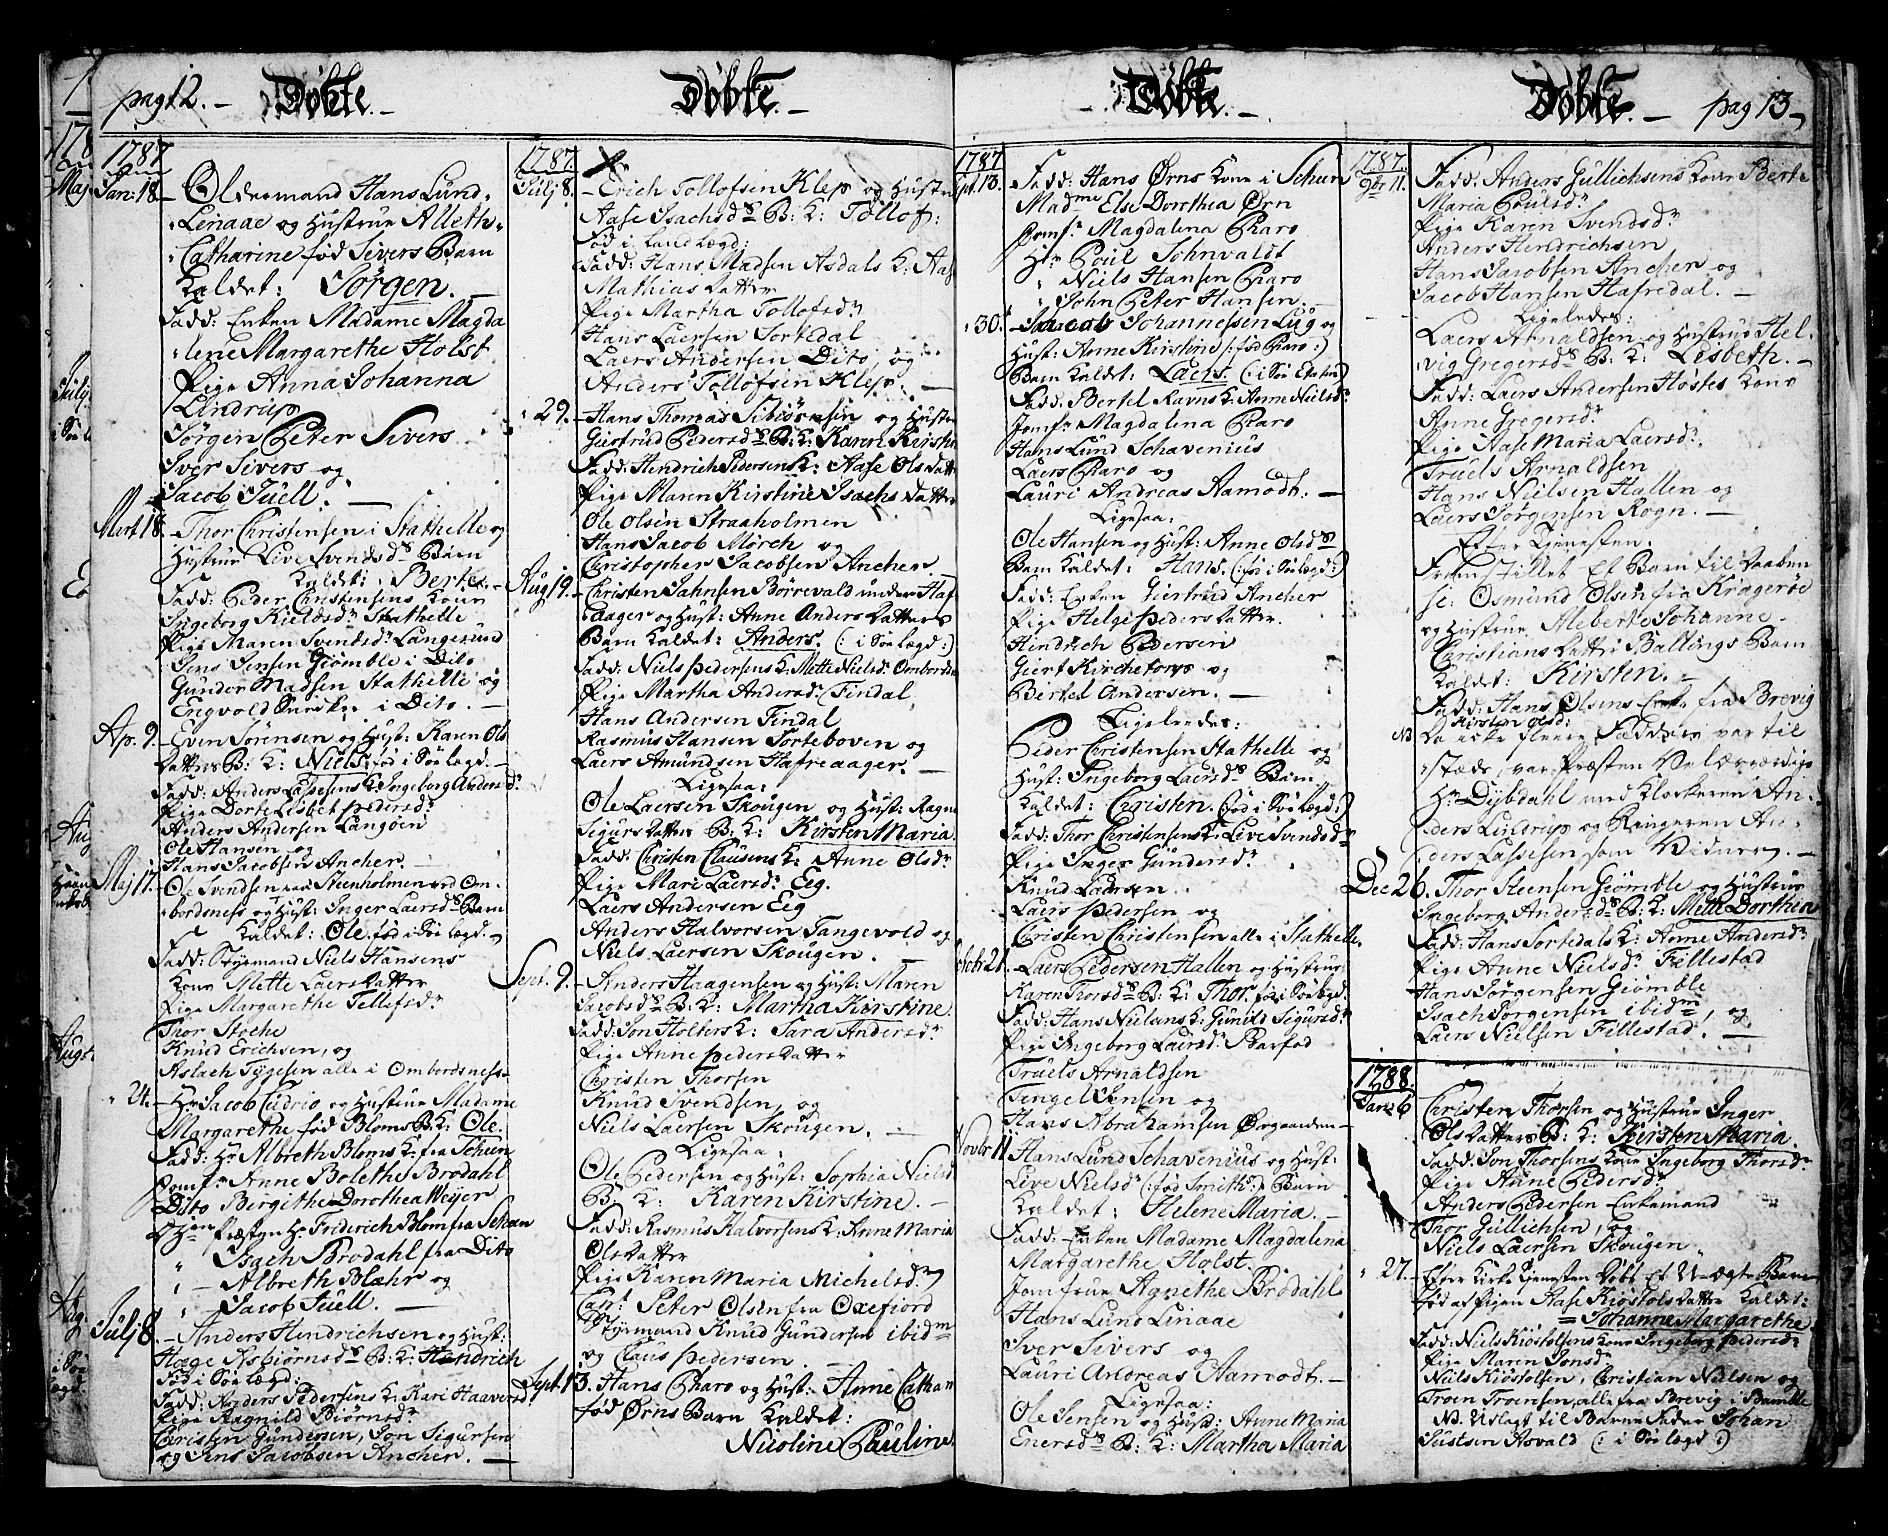 pag: 12. Døbte. Døbte.
1787
Jan: 18. Oldermand Hans Lund
Linaae og Hustrue Alleth
Catharine fød Sivers Barn
Kaldet: Jørgen.
Fadd: Enken Madame Magda
lene Margarethe Holst
Pige Anna Johanna
Lindrup
Jørgen Peter Sivers
Iver Sivers og
Jacob Juell.
Mart. 18. Thor Christensen i Stathelle og
Hustrue Live Svendsd. Barn
Kaldet: Berte.
Fadd: Peder Christensens Kone
Ingeborg Kieldsd. Stathelle
Pige Maren Svendsd. Langesund
Jens Jensen Giømble i Dito
Gunder Madsen Stathelle og
Engvold i Dito.
Ap. 9. Even Sørensen og Hust: Karen Ols
Datters B: K: Niels. fød i Søe Lægd.
Fadd: Anders Lassesens K: Ingeborg Andersd.
Pige Dorte Lisbet Pedersd.
Anders Andersen Langøen
Ole Hansen og
Hans Jacobsen Ancher.
Maj 17. Ole Svendsen Steenholmen ved Om
bordsness og Hust: Inger Laersd. Barn
Kaldet: Ole. fød i Søe Lægd.
Fadd: Styrmand Niels Hansens
Kone Mette Laers Datter
Pige Margarethe Tellefsd.
Thor Stoche
Knud Erichsen, og
Aslach Tygesen alle i Ombordsness
24. Hr. Jacob Cudrio og Hustrue Madame
Margarethe fød Bloms B: K: Ole.
Fadd: Hr. Albreth Bloms K: fra Scheen
Jomf. Anne Bolethe Brodahl
Dito Bergithe Dorothea Weyer
Præsten Hr. Friderich Blom fra Scheen
Isach Brodahl fra Dito
Albreth Blæhr og
Jacob Juell.
Julj 8. Anders Hendrichsen og Hust:
Hæge Asbiørnsd. B: K: Hendrich
Fød i Søe Lægd:
Fadd: Anders Pedersens K: Kari Haaversd.
Pige Ragnild Biørnsd.
Christen Gundersen, Jon Sigursen
og Jens Jacobsen Ancher.
1787.
Julj 8. Erich Tollofsen Klep og Hustru
Aase Isachsd. B: K: Tollof:
Fød i Land Lægd:
Fadd: Hans Madsen Asdals K: Aase
Mathias Datter
Pige Martha Tollofsd.
Hans Laersen Tortedal
Laers Andersen Dito, og
Anders Tollofsen Klep.
29. Hans Thomas Sibiørnsen og Hustru
Giertrud Pedersd. B: K: Karen Kirstin
Fadd: Hendrich Pedersens K: Aase Ols Datt
Pige Maren Kirstine Isachs Datter
Ole Olsen Straaholmen
Hans Jacob Mørch og
Christopher Jacobsen Ancher.
Aug 19. Christen Jahnsen Børrevald under Haf
aager og Hust: Anne Anders Datters
Barn Kaldet: Anders. (: i Søe Lægd:)
Fadd: Niels Pedersens K: Mette Nielsd. Ombordsn
Pige Martha Andersd. Findal
Hans Andersen Findal
Rasmus Hansen Torteboven og
Laers Amundsen Hafreaager.
Ligesaa:
Ole Laersen Skougen og Hust: Ragne
Sigurs Datters B: K: Kirsten Maria
Fadd: Christen Clausens K: Anne Olsd.
Pige Mari Laersd. Eeg.
Laers Andersen Eeg
Anders Halvorsen Tangevold og
Niels Laersen Skougen.
Sept. 9. Anders Haagensen og Hust: Maren
Jacobsd. B: K: Martha Kirstine
Fadd: Jon Holters K: Sara Andersd.
Pige Anne Peders Datter
Christen Thorsen
Knud Svendsen, og
Niels Laersen Skougen.
Ligesaa:
Ole Pedersen og Hust: Sophia Nielsd
B: K: Karen Kirstine.
Fadd: Rasmus Halvorsens K: Anne Maria
Ols Datter
Pige Karen Maria Michelsd.
Capt. Peter Olsen fra Oxefiord
Styrmand Knud Gundersen ibidm
og Claus Pedersen.
Sept. 13. Hans Pharo og Hust: Anne Cathar
fød Ørns Barn Kaldet:
Nicoline Pauline
Døbte. Døbte. pag 13
1787
Spt. 13. Fadd: Hans Ørns Kone i Scheen
Madme Else Dorothea Ørn
Jomf. Magdalena Pharo
Hr. Poul Schnvaldt
Niels Hansen Pharo
John Peter Hansen.
30. Jacob Johannessen Lug og
Hust: Anne Kirstine (: fød Pharo :)
Barn Kaldet: Laers. (: i Søe Lægden)
Fadd: Bertel Ravns K: Anne Nielsd.
Jomf. Magdalena Pharo
Hans Lund Schavenius
Laers Pharo og
Lauri Andreas Aamodt.
Ligesaa:
Ole Hansen og Hust: Anne Olsd.
Barn Kaldet: Hans. (: fød i Søe Lægd:)
Fadd: Enken Giertrud Ancher
Pige Helge Peders Datter.
Hindrich Pedersen
Giert Kirchetorp og
Bertel Andersen.
Ligeledes:
Peder Christensen Stathelle og
Hust: Ingeborg Laersd. Barn
Kaldet: Christen. (fød i Søe Lægd:)
Fadd: Thor Christensens K: Live Svendsd.
Pige Inger Gundersd.
Knud Laersen
Laers Pedersen og
Christen Christensen alle i Stathelle.
Octobr 21. Laers Pedersen Hallen og Hustrue
Karen Thorsd. B: K: Thor. fød i Søe Lægd.
Fadd: Hans Nielsens K: Gunild Sigursd.
Pige Ingeborg Laersd. Barfod
Truels Arnaldsen
Tengel Jensen og
Hans Abrahamsen Ørgaarden
Novbr 11. Hans Lund Schavenius og Hust:
Live Nielsd. (: fød Smith :) Barn
Kaldet: Helene Maria.
Fadd: Enken Madame Magdalena
Margarethe Holst.
Jomfrue Agnethe Brodahl
Hans Lund Linaae
Iver Sivers og
Lauri Andreas Aamodt.
Ligesaa:
Ole Jensen og Hust: Anne Maria
Enersd. B: K: Martha Maria
1787.
9br 11. Fadd: Anders Gullichsens Kone Berte
Maria Poulsd.
Pige Karen Svendsd.
Anders Hendrichsen
Hans Jacobsen Ancher og
Jacob Hansen Hafredal.
Ligeledes:
Laers Arnaldsen og Hustrue Hel
vig Gregersd. B: K: Lisbeth.
Fadd: Laers Andersen Høstes Kone
Anne Gregersd.
Pige Aase Maria Laersd.
Truels Arnaldsen
Hans Nielsen Hallen og
Laers Jørgensen Rogn.
Efter Tjenesten.
Fremstillet Et Barn til Daaben
se: Osmund Olsen fra Kragerøe
og Hustrue Aleberte Johanne
Christians Datter Ballings Barn
Kaldet: Kirsten.
Fadd: Hans Olsens Enke fra Brevig
Kirsten Olsd:
NB Da icke fleere Faddere var til
stæde, var Præsten Velærværdige
Hr. Dybdahl med Klockeren An
ders Lindrup og Ringeren An
ders Lassesen som Vidner.
Dec 26. Thor Steensen Giømble og Hustrue
Ingeborg Andersd. B: K: Mette Dorthea
Fadd: Hans Tortedals K: Anne Andersd.
Pige Anne Nielsd. Fillestad
Hans Jørgensen Giømble
Isach Jørgensen ibidm, og
Laers Nielsen Fillestad.
1788.
Jan: 6 Christen Thorsen og Hustrue Inger
Ols Datters B: K: Kirsten Maria.
Fadd: Jon Thorsens Kone Ingeborg Thorsd.
Pige Anne Pedersd.
Anders Pedersen Enkemand
Thor Gullichsen, og
Niels Laersen Skougen
27. Efter Kirke Tjenesten Døbt Et U-ægte Barn
fød af Pigen Aase Kiøstols Datter Kaldet:
Johanne Margarethe
Fadd: Niels Kiøstolsens Kone Ingeborg Pedersd.
Pige Maren Jonsd.
Niels Kiøstolsen, Christian Nielsen og
Troen Troensen, alle fra Brevig i Bamble
Nb. Udlagt til Barne Fader Johan
Justsen Asvald (: i Søe Lægd :)